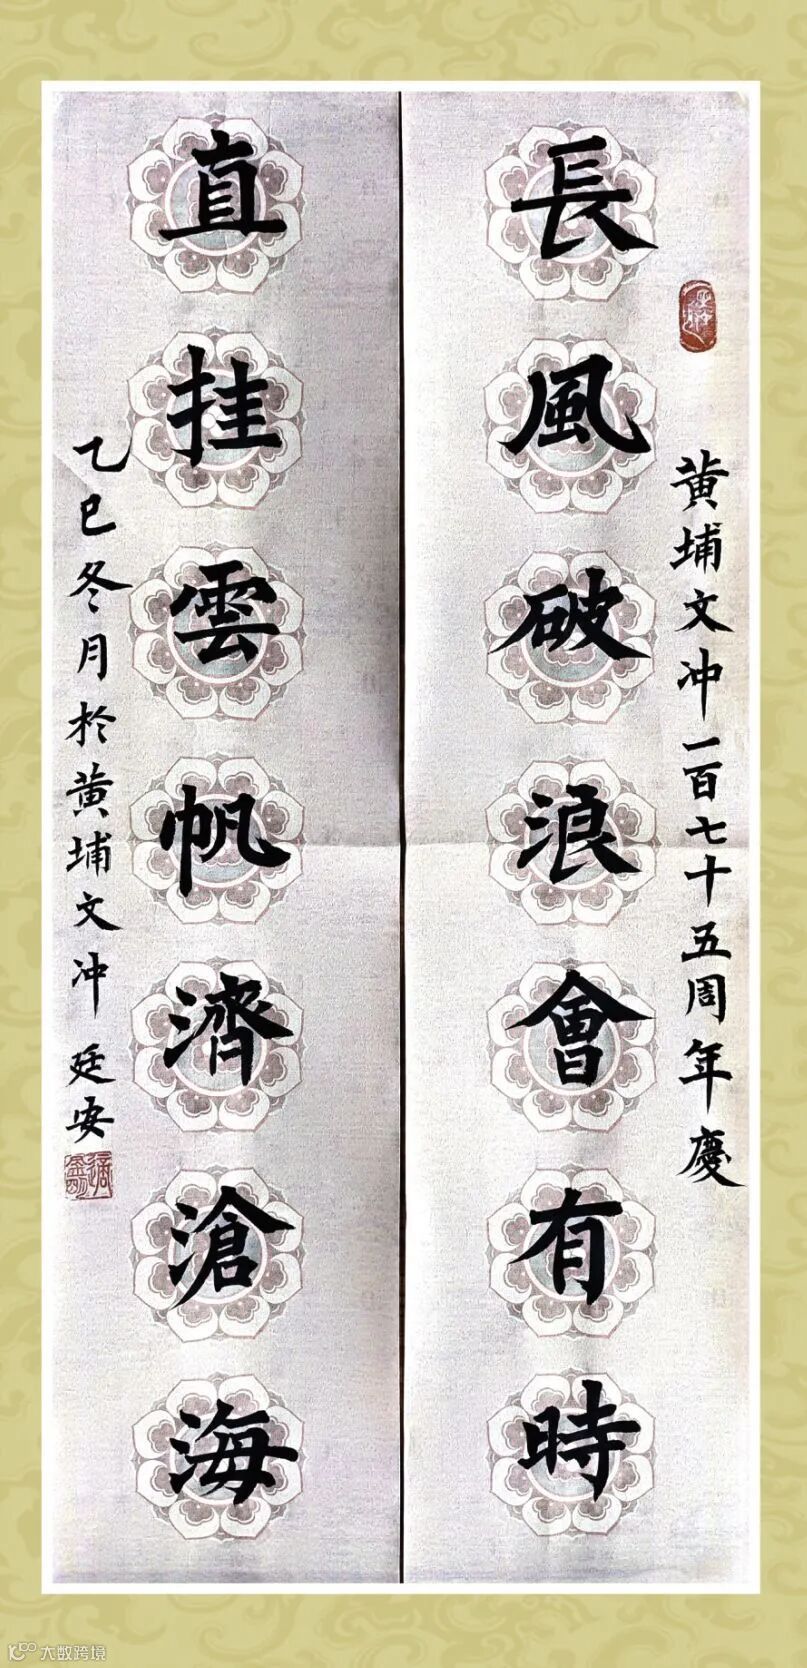 長風破浪會有時
黄埔文冲一百七十五周年慶
直挂雲帆濟滄海
乙巳冬月於黄埔文冲 廷安
大数跨境